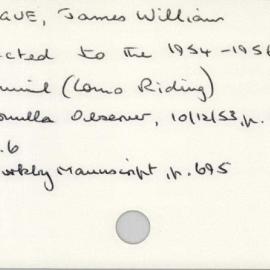 GUE, James William
ected to the 1954-1956
uncil (Lomo Riding)
omulla Observer, 10/12/53, p.
.6
Manuscript, p. 695